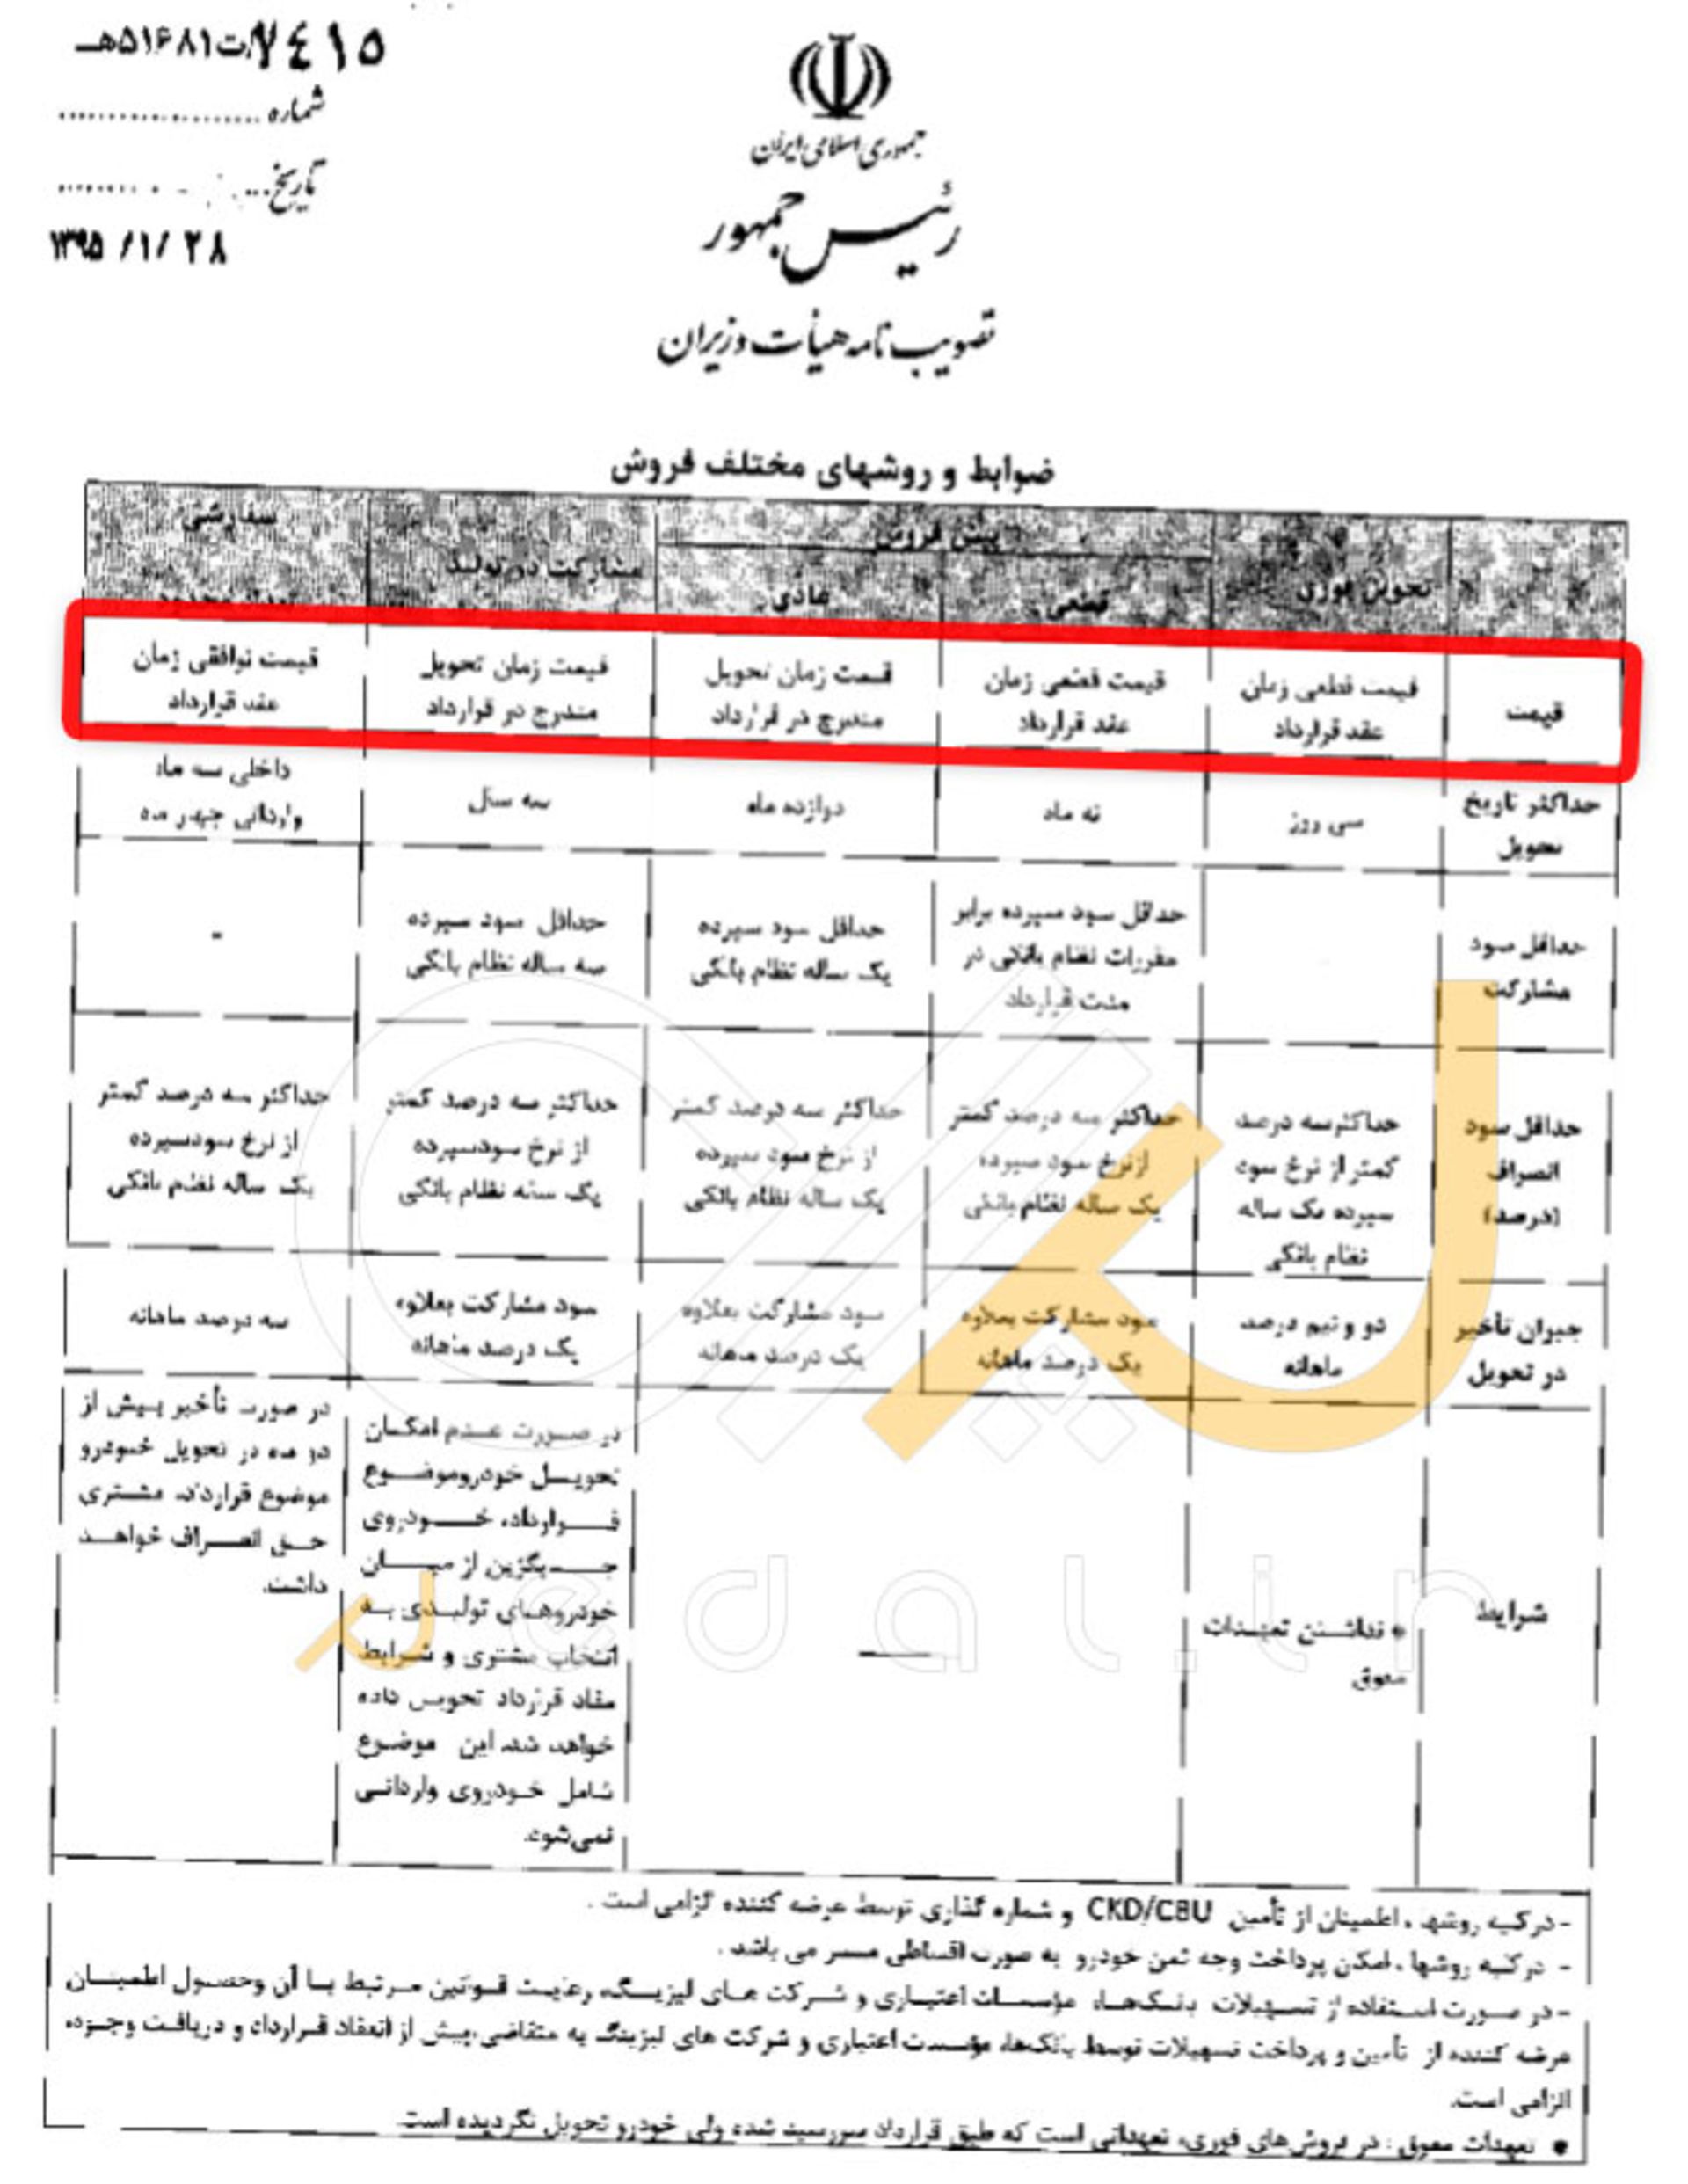 ۷٤۱۵/ت۵۱۶۸۱هـ
شماره
تاریخ
۱۳۹۵/۱/۲۸
جمهوری اسلامی ایران
رئیس جمهور
تصویب نامه هیأت وزیران
ضوابط و روشهای مختلف فروش
تحویل فوری
پیش فروش
قطعی
عادی
مشارکت در تولید
سفارشی
قیمت
قیمت قطعی زمان
عقد قرارداد
قیمت قطعی زمان
عقد قرارداد
قیمت زمان تحویل
مندرج در قرارداد
قیمت زمان تحویل
مندرج در قرارداد
قیمت توافقی زمان
عقد قرارداد
حداکثر تاریخ
تحویل
سی روز
نه ماه
دوازده ماه
سه سال
داخلی سه ماه
وارداتی چهار ماه
حداقل سود
مشارکت
حداقل سود سپرده برابر
مقررات نظام بانکی در
مدت قرارداد
حداقل سود سپرده
یک ساله نظام بانکی
حداقل سود سپرده
سه ساله نظام بانکی
-
حداقل سود
انصراف
(درصد)
حداکثر سه درصد
کمتر از نرخ سود
سپرده یک ساله
نظام بانکی
حداکثر سه درصد کمتر
از نرخ سود سپرده
یک ساله نظام بانکی
حداکثر سه درصد کمتر
از نرخ سود سپرده
یک ساله نظام بانکی
حداکثر سه درصد کمتر
از نرخ سودسپرده
یک ساله نظام بانکی
حداکثر سه درصد کمتر
از نرخ سودسپرده
یک ساله نظام بانکی
جبران تأخیر
در تحویل
دو و نیم درصد
ماهانه
سود مشارکت بعلاوه
یک درصد ماهانه
سود مشارکت بعلاوه
یک درصد ماهانه
سود مشارکت بعلاوه
یک درصد ماهانه
سه درصد ماهانه
شرایط
* نداشتن تعهدات
معوق
در صورت عدم امکان
تحویل خودروموضوع
قرارداد، خودروی
جایگزین از میان
خودروهای تولیدی به
انتخاب مشتری و شرایط
مفاد قرارداد تحویل داده
خواهد شد. این موضوع
شامل خودروی وارداتی
نمی‌شود.
در صورت تأخیر بیش از
دو ماه در تحویل خودرو
موضوع قرارداد، مشتری
حق انصراف خواهد
داشت.
- در کلیه روشها، اطمینان از تأمین CKD/CBU و شماره گذاری توسط عرضه کننده الزامی است.
- در کلیه روشها، امکان پرداخت وجه ثمن خودرو به صورت اقساطی میسر می باشد.
- در صورت استفاده از تسهیلات بانک‌ها، مؤسسات اعتباری و شرکت های لیزینگ، رعایت قوانین مرتبط با آن وحصول اطمینان
عرضه کننده از تأمین و پرداخت تسهیلات توسط بانک‌ها، مؤسسات اعتباری و شرکت های لیزینگ به متقاضی، پیش از انعقاد قرارداد و دریافت وجوه
الزامی است.
* تعهدات معوق: در فروش‌های فوری، تعهداتی است که طبق قرارداد سررسید شده ولی خودرو تحویل نگردیده است.
pedal.ir